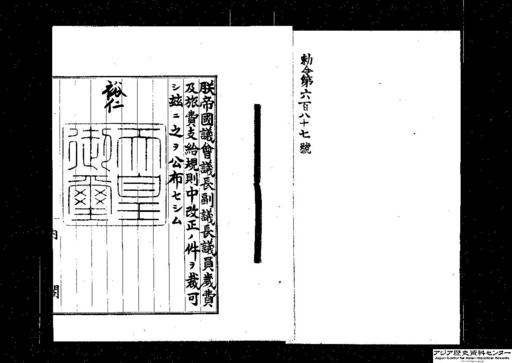 勅令第六百八十七號
朕帝國議會議長副議長議員歲費
及旅費支給規則中改正ノ件ヲ裁可
シ茲ニ之ヲ公布セシム
裕仁
天皇
御璽
内閣
アジア歴史資料センター
Japan Center for Asian Historical Records